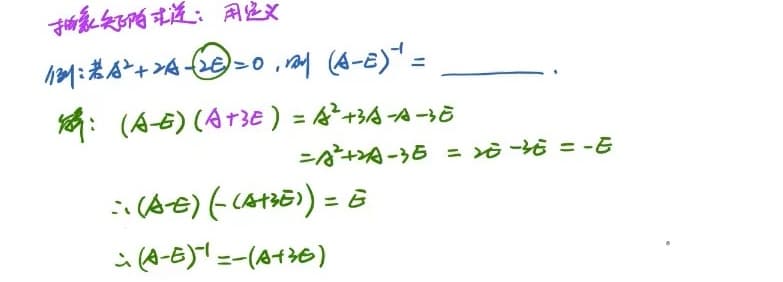 抽象矩阵求逆：用定义
例：若A²+2A-2E=0，则 (A-E)⁻¹ = ______ .
解：(A-E)(A+3E) = A²+3A-A-3E
=A²+2A-3E = 2E-3E = -E
∴(A-E)(-(A+3E)) = E
∴(A-E)⁻¹=-(A+3E)